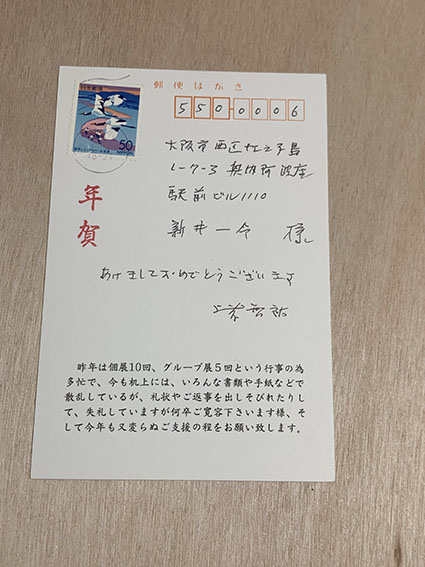 郵便はがき
550-0006
50
大阪市西区江之子島
1-7-3 奥内阿波座
駅前ビル1110
新井一令 様
年賀
あけましておめでとうございます
昨年は個展10回、グループ展5回という行事の為
多忙で、今も机上には、いろんな書類や手紙などで
散乱しているが、礼状やご返事を出しそびれたりし
て、失礼していますが何卒ご寛容下さいます様、そ
して今年も又変らぬご支援の程をお願い致します。